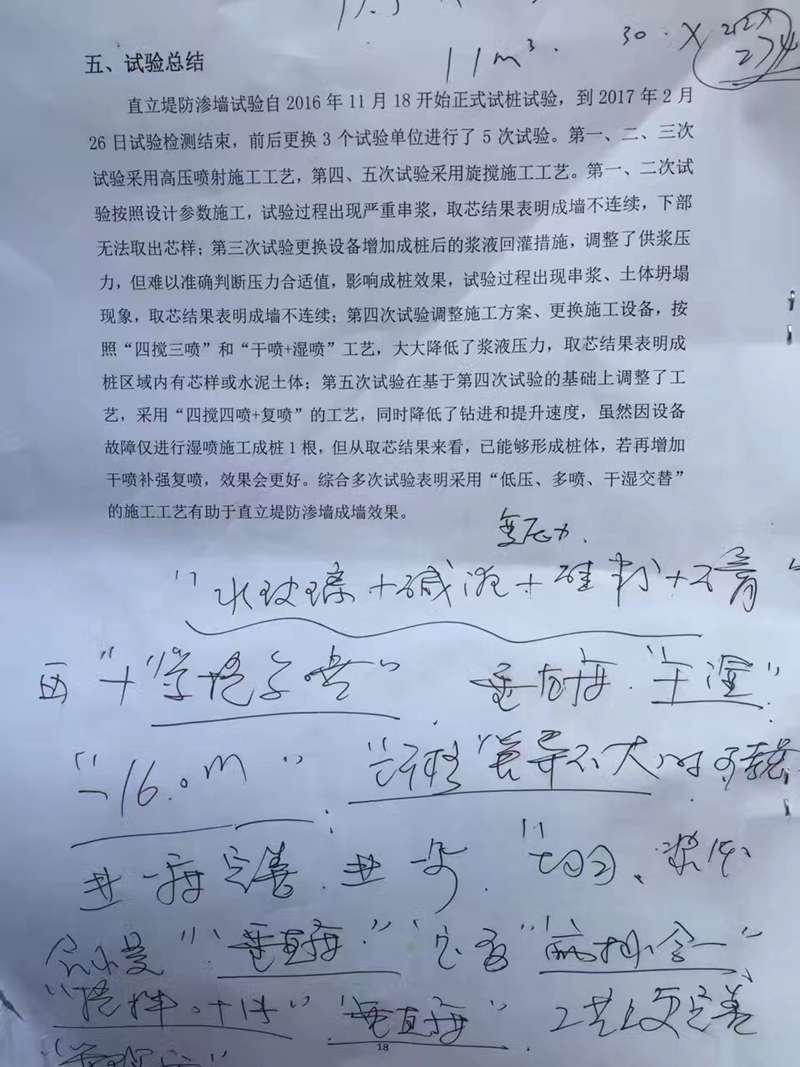 11m³
30 ·X
五、试验总结
直立堤防渗墙试验自 2016 年 11 月 18 开始正式试桩试验，到 2017 年 2 月
26 日试验检测结束，前后更换 3 个试验单位进行了 5 次试验。第一、二、三次
试验采用高压喷射施工工艺，第四、五次试验采用旋搅施工工艺。第一、二次试
验按照设计参数施工，试验过程出现严重串浆，取芯结果表明成墙不连续，下部
无法取出芯样；第三次试验更换设备增加成桩后的浆液回灌措施，调整了供浆压
力，但难以准确判断压力合适值，影响成桩效果，试验过程出现串浆、土体坍塌
现象，取芯结果表明成墙不连续；第四次试验调整施工方案、更换施工设备，按
照“四搅三喷”和“干喷+湿喷”工艺，大大降低了浆液压力，取芯结果表明成
桩区域内有芯样或水泥土体；第五次试验在基于第四次试验的基础上调整了工
艺，采用“四搅四喷+复喷”的工艺，同时降低了钻进和提升速度，虽然因设备
故障仅进行湿喷施工成桩 1 根，但从取芯结果来看，已能够形成桩体，若再增加
干喷补强复喷，效果会更好。综合多次试验表明采用“低压、多喷、干湿交替”
的施工工艺有助于直立堤防渗墙成墙效果。
变压力.
“水玻璃+碱泥+硅粉+石膏”
垂直度. “干湿”
“-16.0m” 差异不大
进一步完善 “切割、浆体
“垂直度” “两排合一”
“搅拌. “垂直度” 工艺上更完善
18